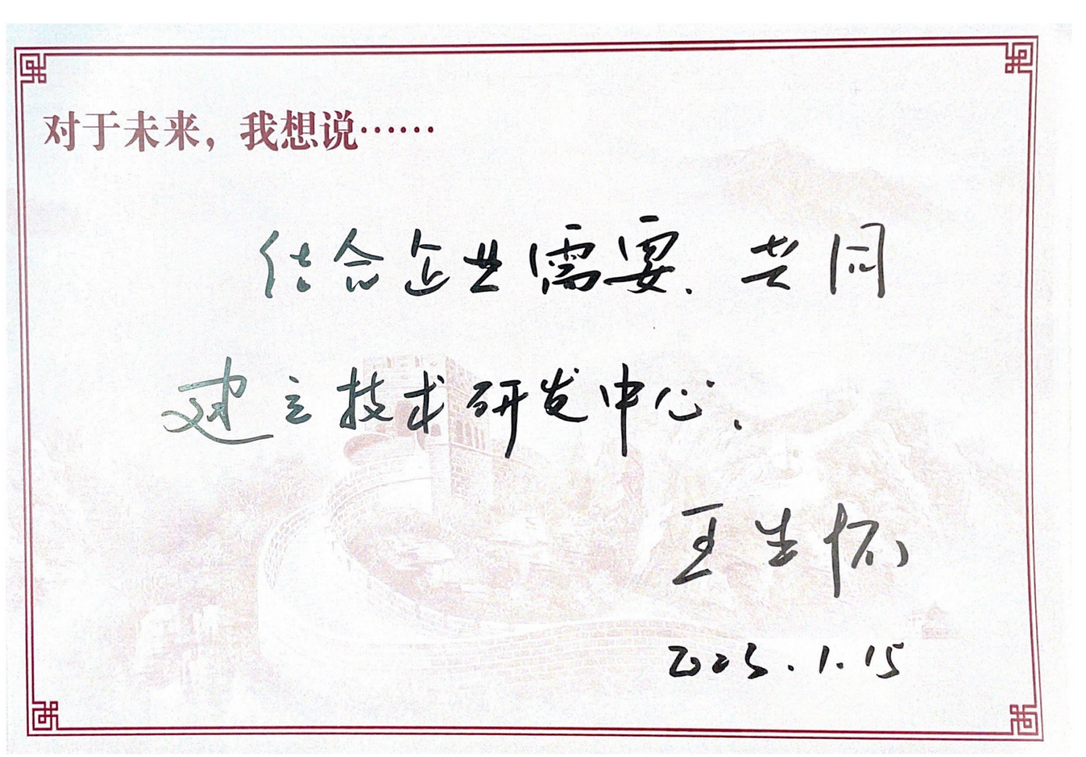 对于未来，我想说……
结合企业需要、共同
建立技术研发中心.
王生怀
2025.1.15